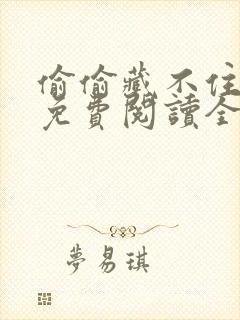 偷偷藏不住
免費閱讀全
夢易琪